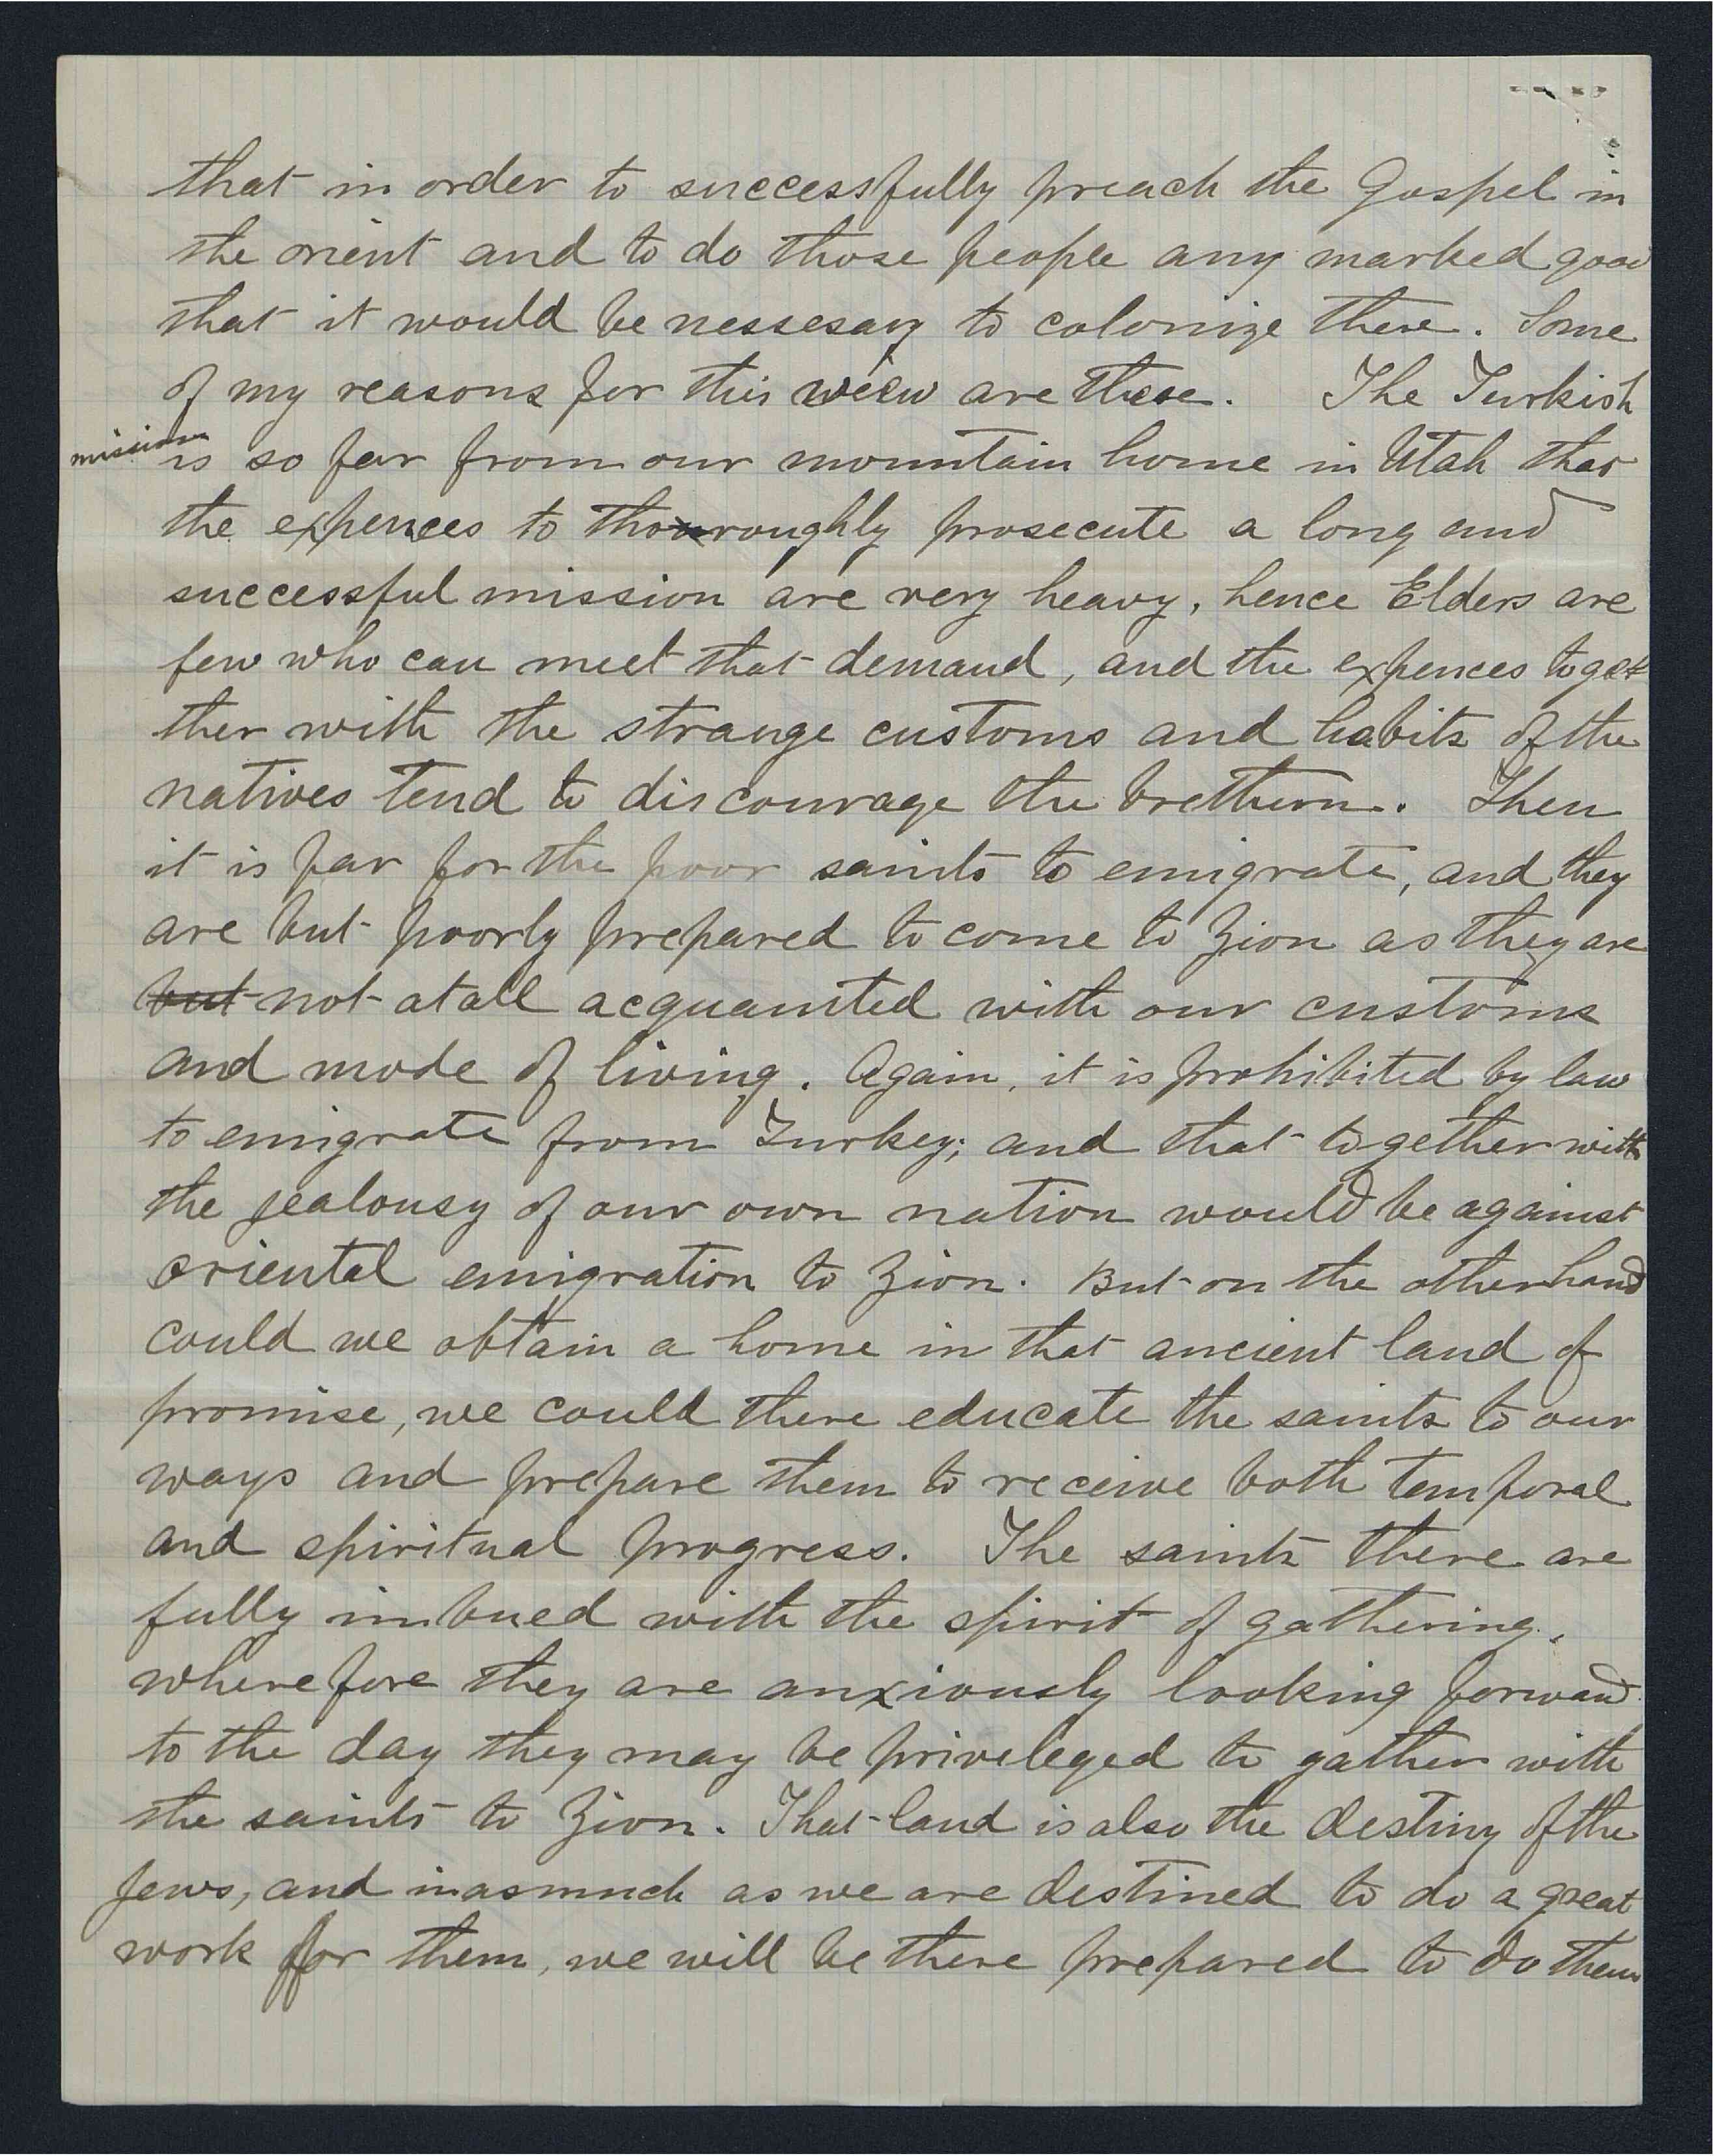 that in order to successfully preach the Gospel in
the orient and to do those people any marked good
that it would be nessesary to colonize there. Some
of my reasons for this wiew are these. The Turkish
mission is so far from our mountain home in Utah that
the expences to thoroughly prosecute a long and
successful mission are very heavy, hence Elders are
few who can meet that demand, and the expences toget
ther with the strange customs and habits of the
natives tend to discourage the brethern. Then
it is far for the poor saints to emigrate, and they
are but poorly prepared to come to Zion as they are
but not at all acquainted with our customs
and mode of living. Again, it is prohibited by law
to emigrate from Turkey; and that together with
the jealousy of our own nation would be against
oriental emigration to Zion. But on the other hand
could we obtain a home in that ancient land of
promise, we could there educate the saints to our
ways and prepare them to receive both temporal
and spiritual progress. The saints there are
fully imbued with the spirit of gathering,
wherefore they are anxiously looking forward
to the day they may be priveleged to gather with
the saints to Zion. That land is also the destiny of the
Jews, and inasmuch as we are destined to do a great
work for them, we will be there prepared to do them